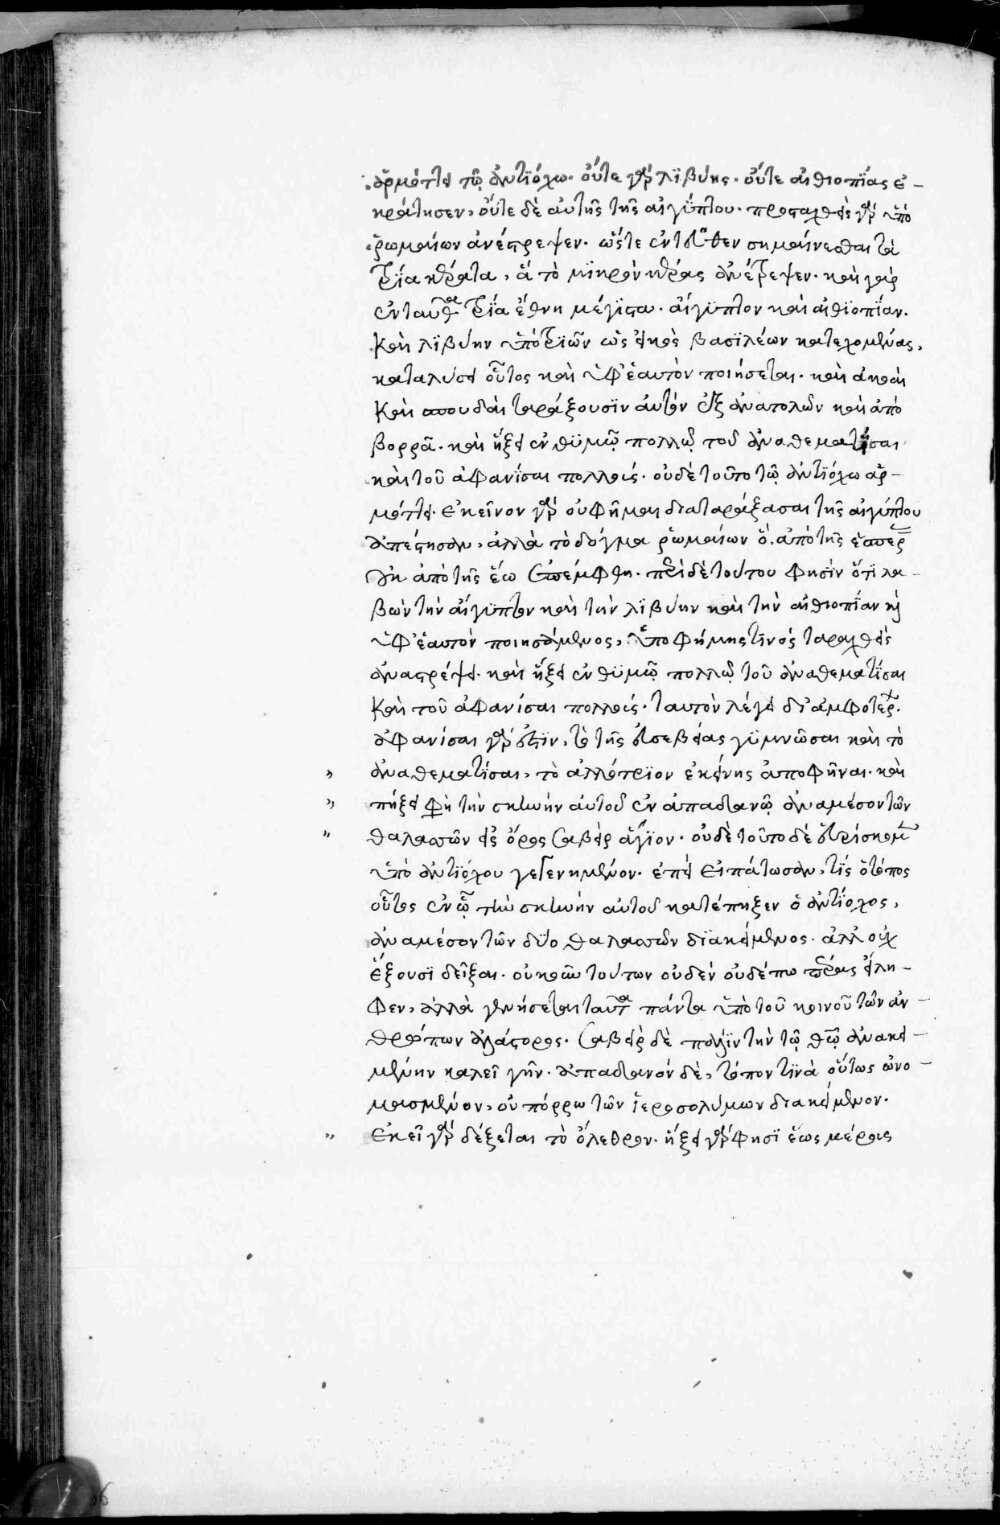 ἁρμόττει τῷ ἀντιόχῳ· οὔτε γὰρ λϊβύης· οὔτε αἰθιοπΐας ἐ-
κράτησεν, οὔτε δὲ αὐτῆς τῆς αἰγύπτου· προσταχθεὶς γὰρ ὑπὸ
ῥωμαίων ἀνέστρεψεν· ὥστε ἐντεῦθεν σημαίνεσθαι τὰ
τρία κέρατα, ἃ τὸ μϊκρὸν κέρας ἀνέτρεψεν· καὶ γὰρ
ἐνταῦθα τρΐα ἔθνη μέγϊστα· αἴγϋπτον καὶ αἰθϊοπΐαν·
καὶ λϊβύην ὑπὸ τρϊῶν ὡς εἰκὸς βασϊλέων κατεχομένας,
καταλύσει οὗτος καὶ ὑφ' ἑαυτὸν ποιήσεται· καὶ ἀκοαὶ
καὶ σπουδαὶ ταράξουσϊν αὐτὸν ἐξ ἀνατολῶν καὶ ἀπὸ
βορρᾶ· καὶ ἥξει ἐν θϋμῷ πολλῷ τοῦ ἀναθεματίσαι
καὶ τοῦ ἀφανΐσαι πολλούς· οὐδὲ τοῦτο τῷ ἀντϊόχῳ ἁρ-
μόττει· ἐκεῖνον γὰρ οὐ φῆμαι διαταράξασαι τῆς αἰγύπτου
ἀπέστησαν, ἀλλὰ τὸ δόγμα ῥωμαίων ὃ ἀπὸ τῆς ἑσπέρας
οὐκ ἀπὸ τῆς ἕω ἐπέμφθη· περὶ δὲ τούτου φησὶν ὅτϊ λα-
βὼν τὴν αἴγϋπτον καὶ τὴν λϊβύην καὶ τὴν αἰθϊοπΐαν καὶ
ὑφ' ἑαυτὸν ποιησάμενος, ὑπὸ φήμης τϊνός ταραχθεὶς
ἀναστρέψει· καὶ ἥξει ἐν θϋμῷ πολλῷ τοῦ ἀναθεματΐσαι
καὶ τοῦ ἀφανίσαι πολλούς· ταυτὸν λέγει δι' ἀμφοτέρων·
ἀφανίσαι γάρ ἐστϊν, τὸ τῆς εὐσεβείας γϋμνῶσαι καὶ τὸ
ἀναθεματΐσαι, τὸ ἀλλότρϊον ἐκείνης ἀποφῆναι· καὶ
πήξει φησὶ τὴν σκηνὴν αὐτοῦ ἐν ἀπαδανῷ ἀναμέσον τῶν
θαλασσῶν εἰς ὄρος σαβεὶρ ἅγϊον· οὐδὲ τοῦτο δὲ εὑρίσκομεν
ὑπὸ ἀντϊόχου γεγενημένον· ἐπεὶ εἰπάτωσαν, τΐς ὁ τόπος
οὗτος ἐν ᾧ τὴν σκηνὴν αὐτοῦ κατέπηξεν ὁ ἀντΐοχος,
ἀναμέσον τῶν δύο θαλασσῶν δϊακείμενος· ἀλλ' οὐχ
ἕξουσϊ δεῖξαι· οὐκοῦν τούτων οὐδὲν οὐδέπω πέρας εἴλη-
φεν, ἀλλὰ γενήσεται ταῦτα πάντα ὑπὸ τοῦ κοινοῦ τῶν ἀν-
θρώπων ἀλάστορος· σαβεὶρ δὲ πάλϊν τὴν τῷ θεῷ ἀνακει-
μένην καλεῖ γῆν· ἀπαδανὸν δὲ, τόπον τϊνὰ οὕτως ὠνο-
μασμένον, οὐ πόρρω τῶν ἱεροσολύμων διακείμενον·
ἐκεῖ γὰρ δέξεται τὸ ὄλεθρον· ἥξει γὰρ φησϊ ἕως μέρους